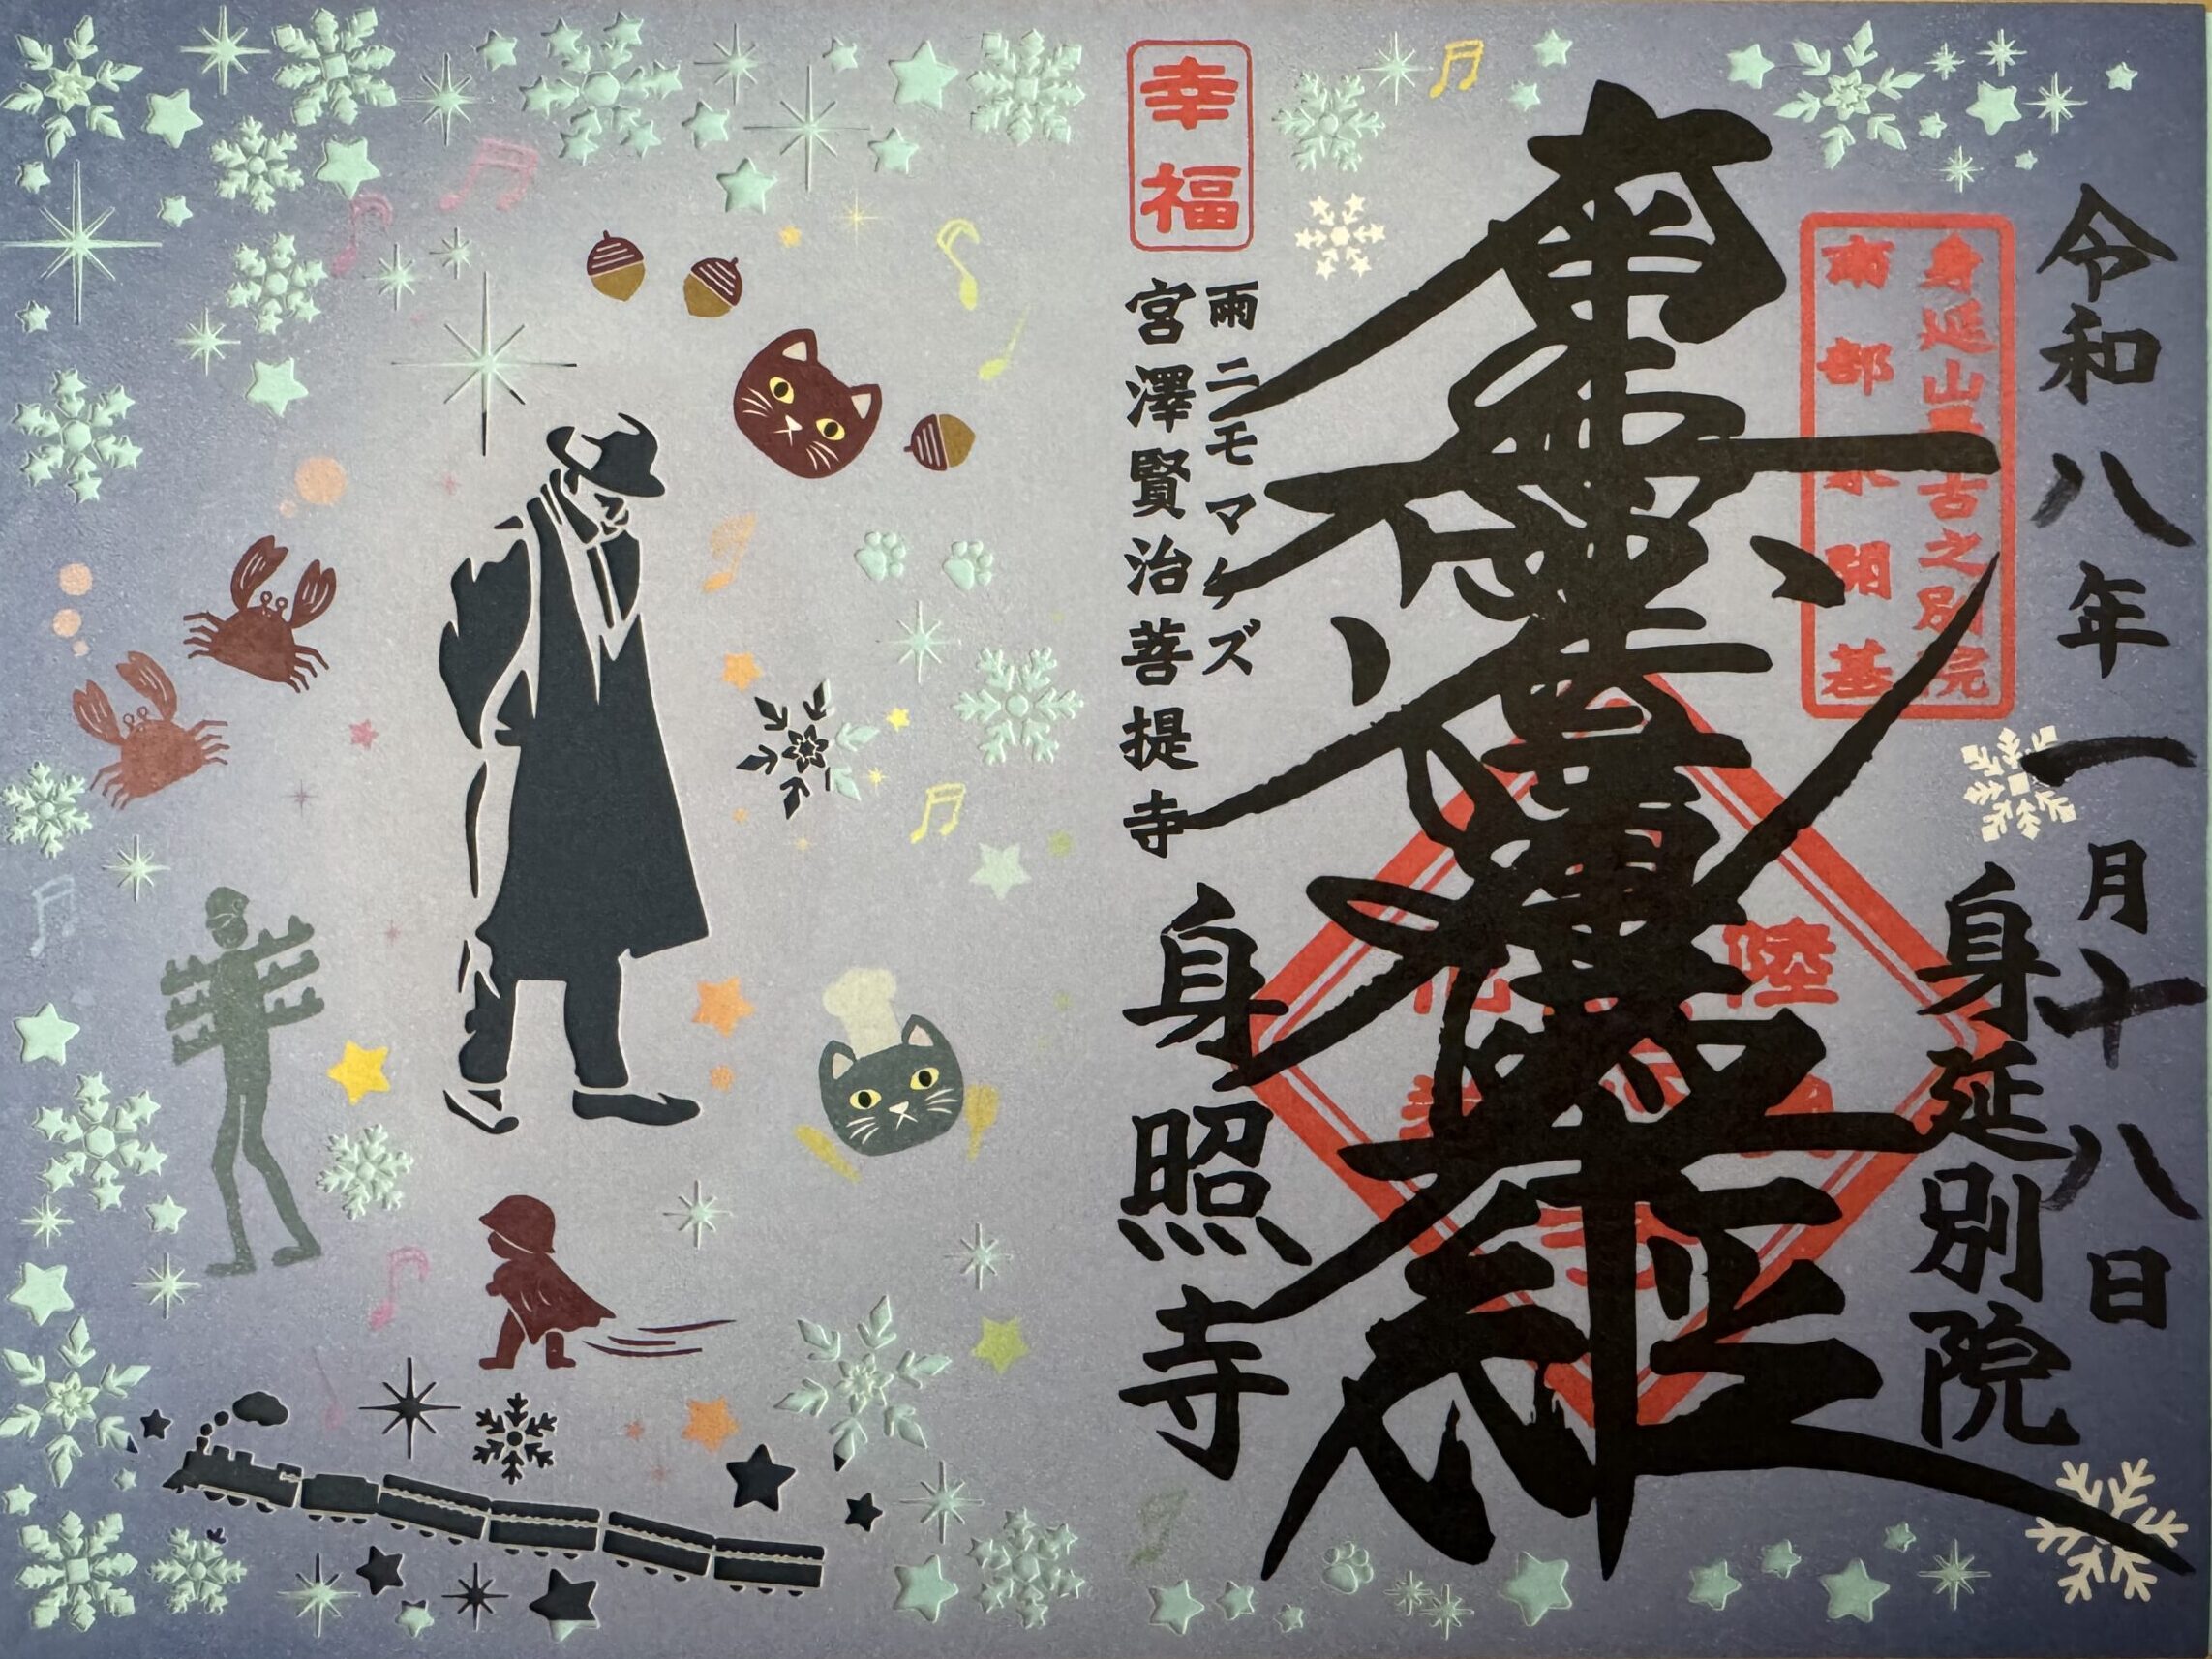 令和八年一月十八日
身延別院
身延山三古之別院
南部家開基
南無妙法蓮華経
幸福
雨ニモマケズ
宮澤賢治菩提寺
身照寺